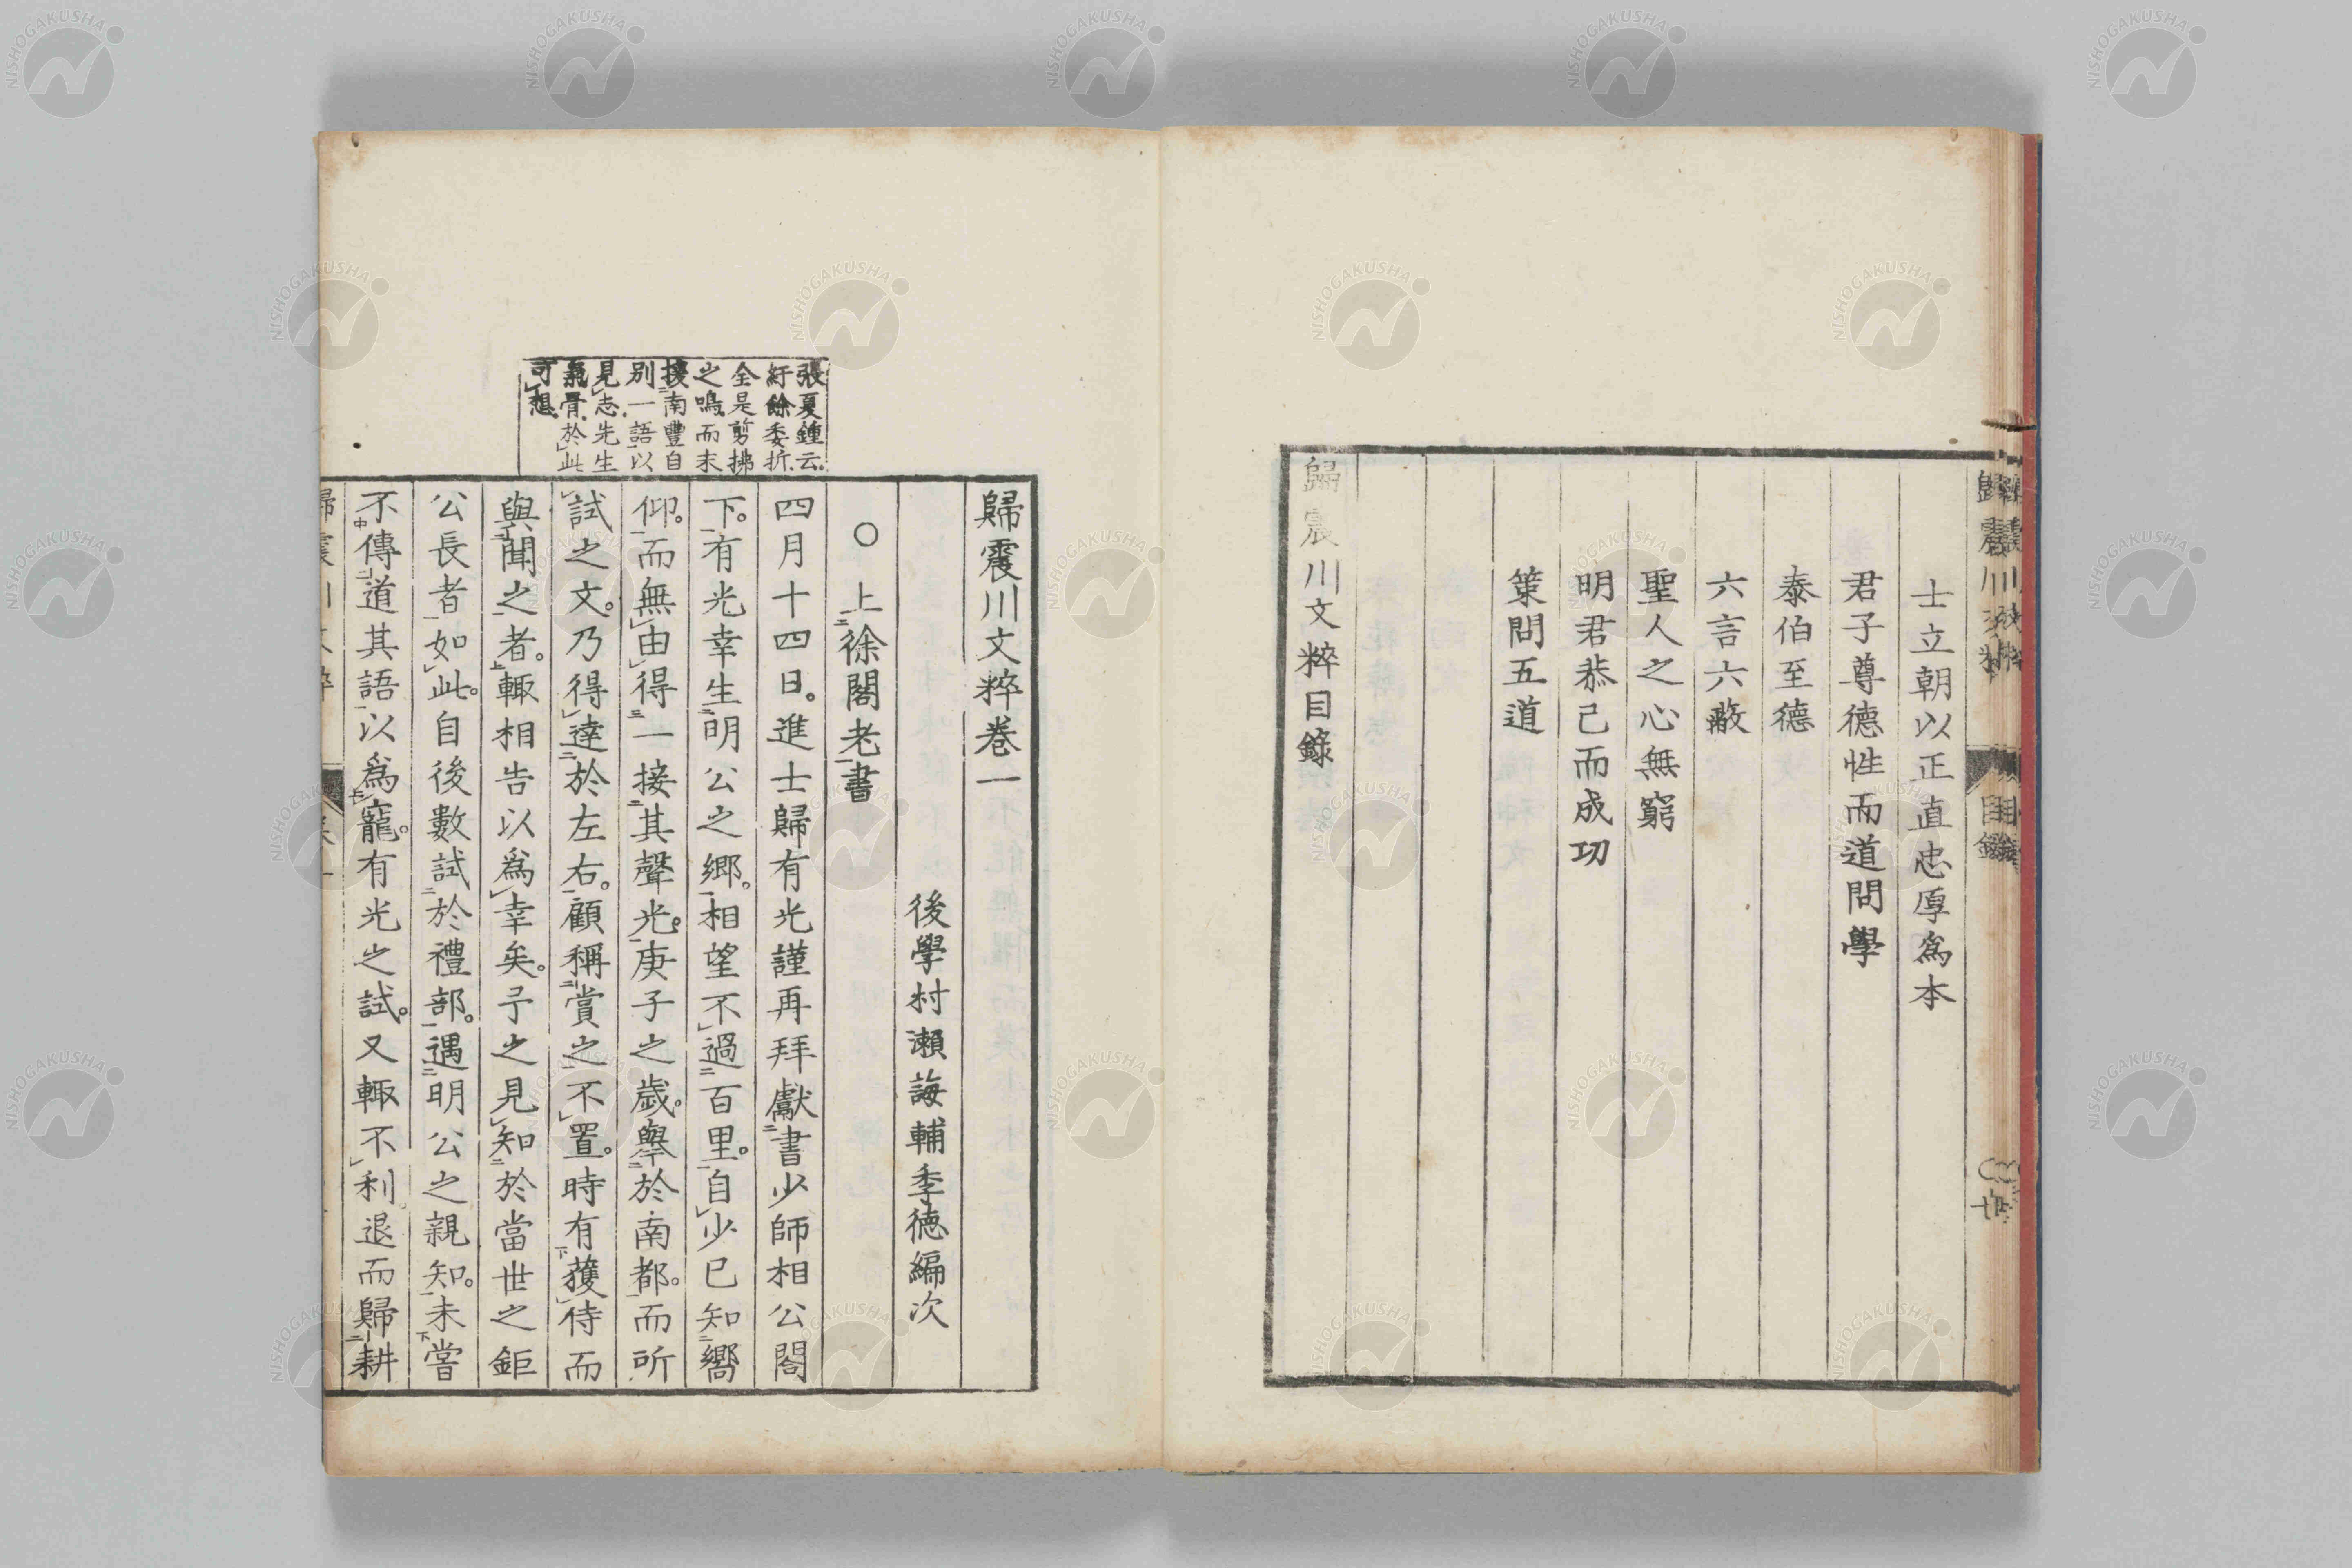 士立朝以正直忠厚爲本
君子尊德性而道問學
泰伯至德
六言六蔽
聖人之心無窮
明君恭己而成功
策問五道
歸震川文粹目錄
張夏鍾云。
紆餘委折。
全是剪拂
之鳴。而末
援南豐自
別一語以
見志。先生
氣骨。於此
可想。
歸震川文粹卷一
後學村瀨誨輔季德編次
〇上徐閣老書
四月十四日。進士歸有光謹再拜獻書少師相公閣
下。有光幸生明公之鄉。相望不過百里。自少已知嚮
仰。而無由得一接其聲光。庚子之歲。舉於南都。而所
試之文。乃得達於左右。顧稱賞之不置。時有獲侍而
與聞之者。輙相告以爲幸矣。予之見知於當世之鉅
公長者如此。自後數試於禮部。遇明公之親知。未嘗
不傳道其語以爲寵。有光之試。又輙不利。退而歸耕
NISHOGAKUSHA